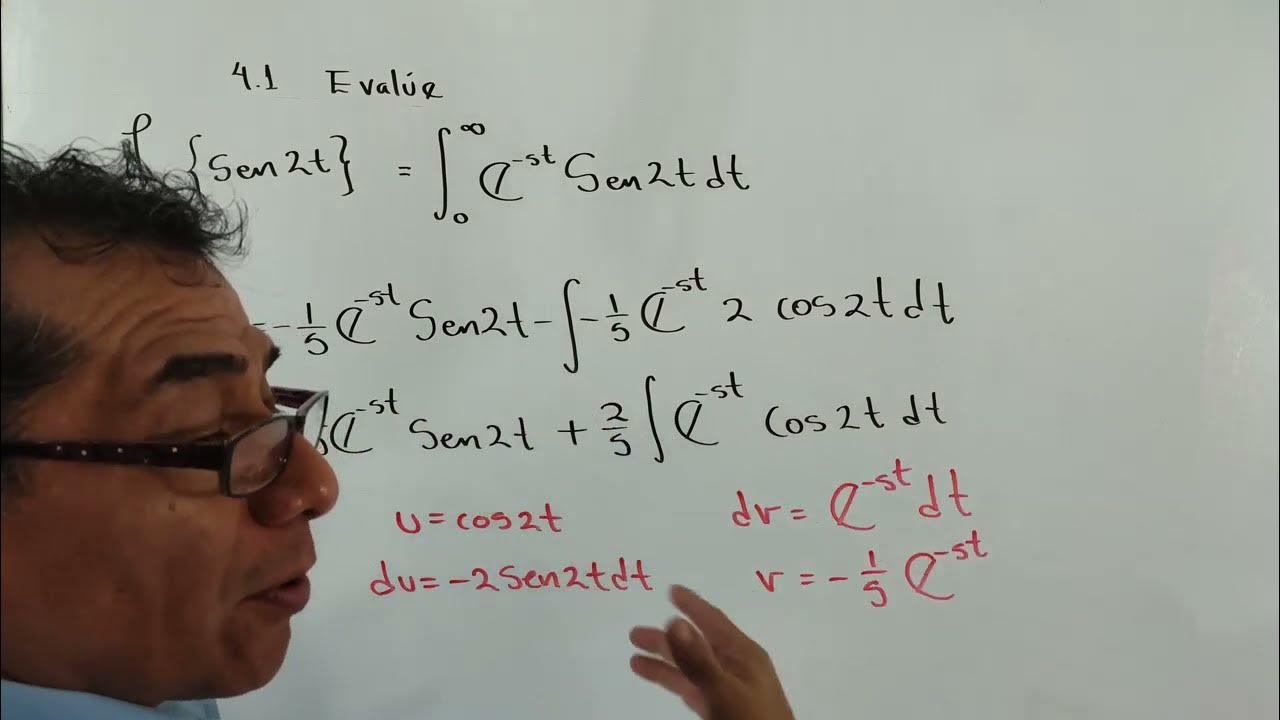 4.1 Evalúe
ℒ {Sen2t} = ∫₀^∞ e^{-st} Sen2t dt
- -1/s e^{-st} Sen2t - ∫ -1/s e^{-st} 2 cos2t dt
e^{-st} Sen2t + 2/s ∫ e^{-st} Cos2t dt
u = cos2t dv = e^{-st} dt
du = -2 Sen2t dt v = -1/s e^{-st}